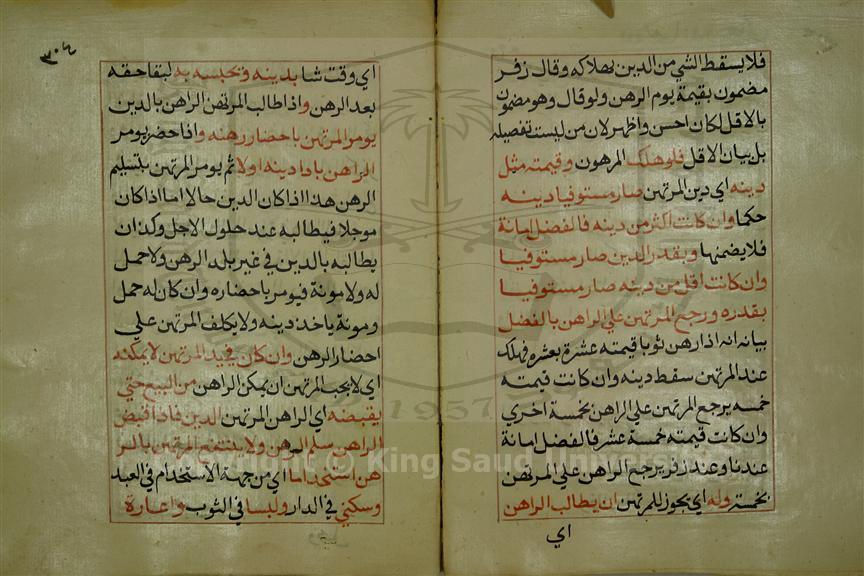 فلا يسقط الشي من الدين بهلاكه وقال زفر
مضمون بقيمة يوم الرهن ولو قال وهو مضمون
بالاقل لكان احسن واظهر لان من ليست تفصيله
بل بيان الاقل فلو هلك المرهون وقيمته مثل
دينه اي دين المرتهن صار مستوفيا دينه
حكما وان كانت اكثر من دينه فالفضل امانة
فلا يضمنها وبقدر الدين صار مستوفيا
وان كانت اقل من دينه صار مستوفيا
بقدره ورجع المرتهن علي الراهن بالفضل
بيانه انه اذا رهن ثوبا قيمته عشرة بعشره فهلك
عند المرتهن سقط دينه وان كانت قيمته
خمسه يرجع المرتهن علي الراهن بخمسة اخري
وان كانت قيمته خمسة عشر فالفضل امانة
عندنا وعند زفر يرجع الراهن علي المرتهن
بخمسة وله اي يجوز للمرتهن ان يطالب الراهن
اي
٣٠٤
اي وقت شا بدينه ويحبسه به لبقا حقه
بعد الرهن واذا طالب المرتهن الراهن بالدين
يومر المرتهن باحضار رهنه واذا حضر يومر
الراهن باداء دينه اولا ثم يومر المرتهن بتسليم
الرهن هذا اذا كان الدين حالا اما اذا كان
موجلا فيطالبه عند حلول الاجل وكذا ان
يطالبه بالدين في غير بلد الرهن ولا حمل
له ولا مونة فيومر باحضاره وان كان له حمل
ومونة ياخذ دينه ولا يكلف المرتهن علي
احضار الرهن وان كان في يد المرتهن لا يمكنه
اي لا يجب المرتهن ان يمكن الراهن من البيع حتي
يقبضه اي الراهن المرتهن الدين فاذا قبض
الراهن سلم الرهن ولا ينتفع المرتهن بالر
هن استخداما اي من جهة الاستخدام في العبد
وسكني في الدار ولبسا في الثوب واعارة
Copyright © King Saud University
1957